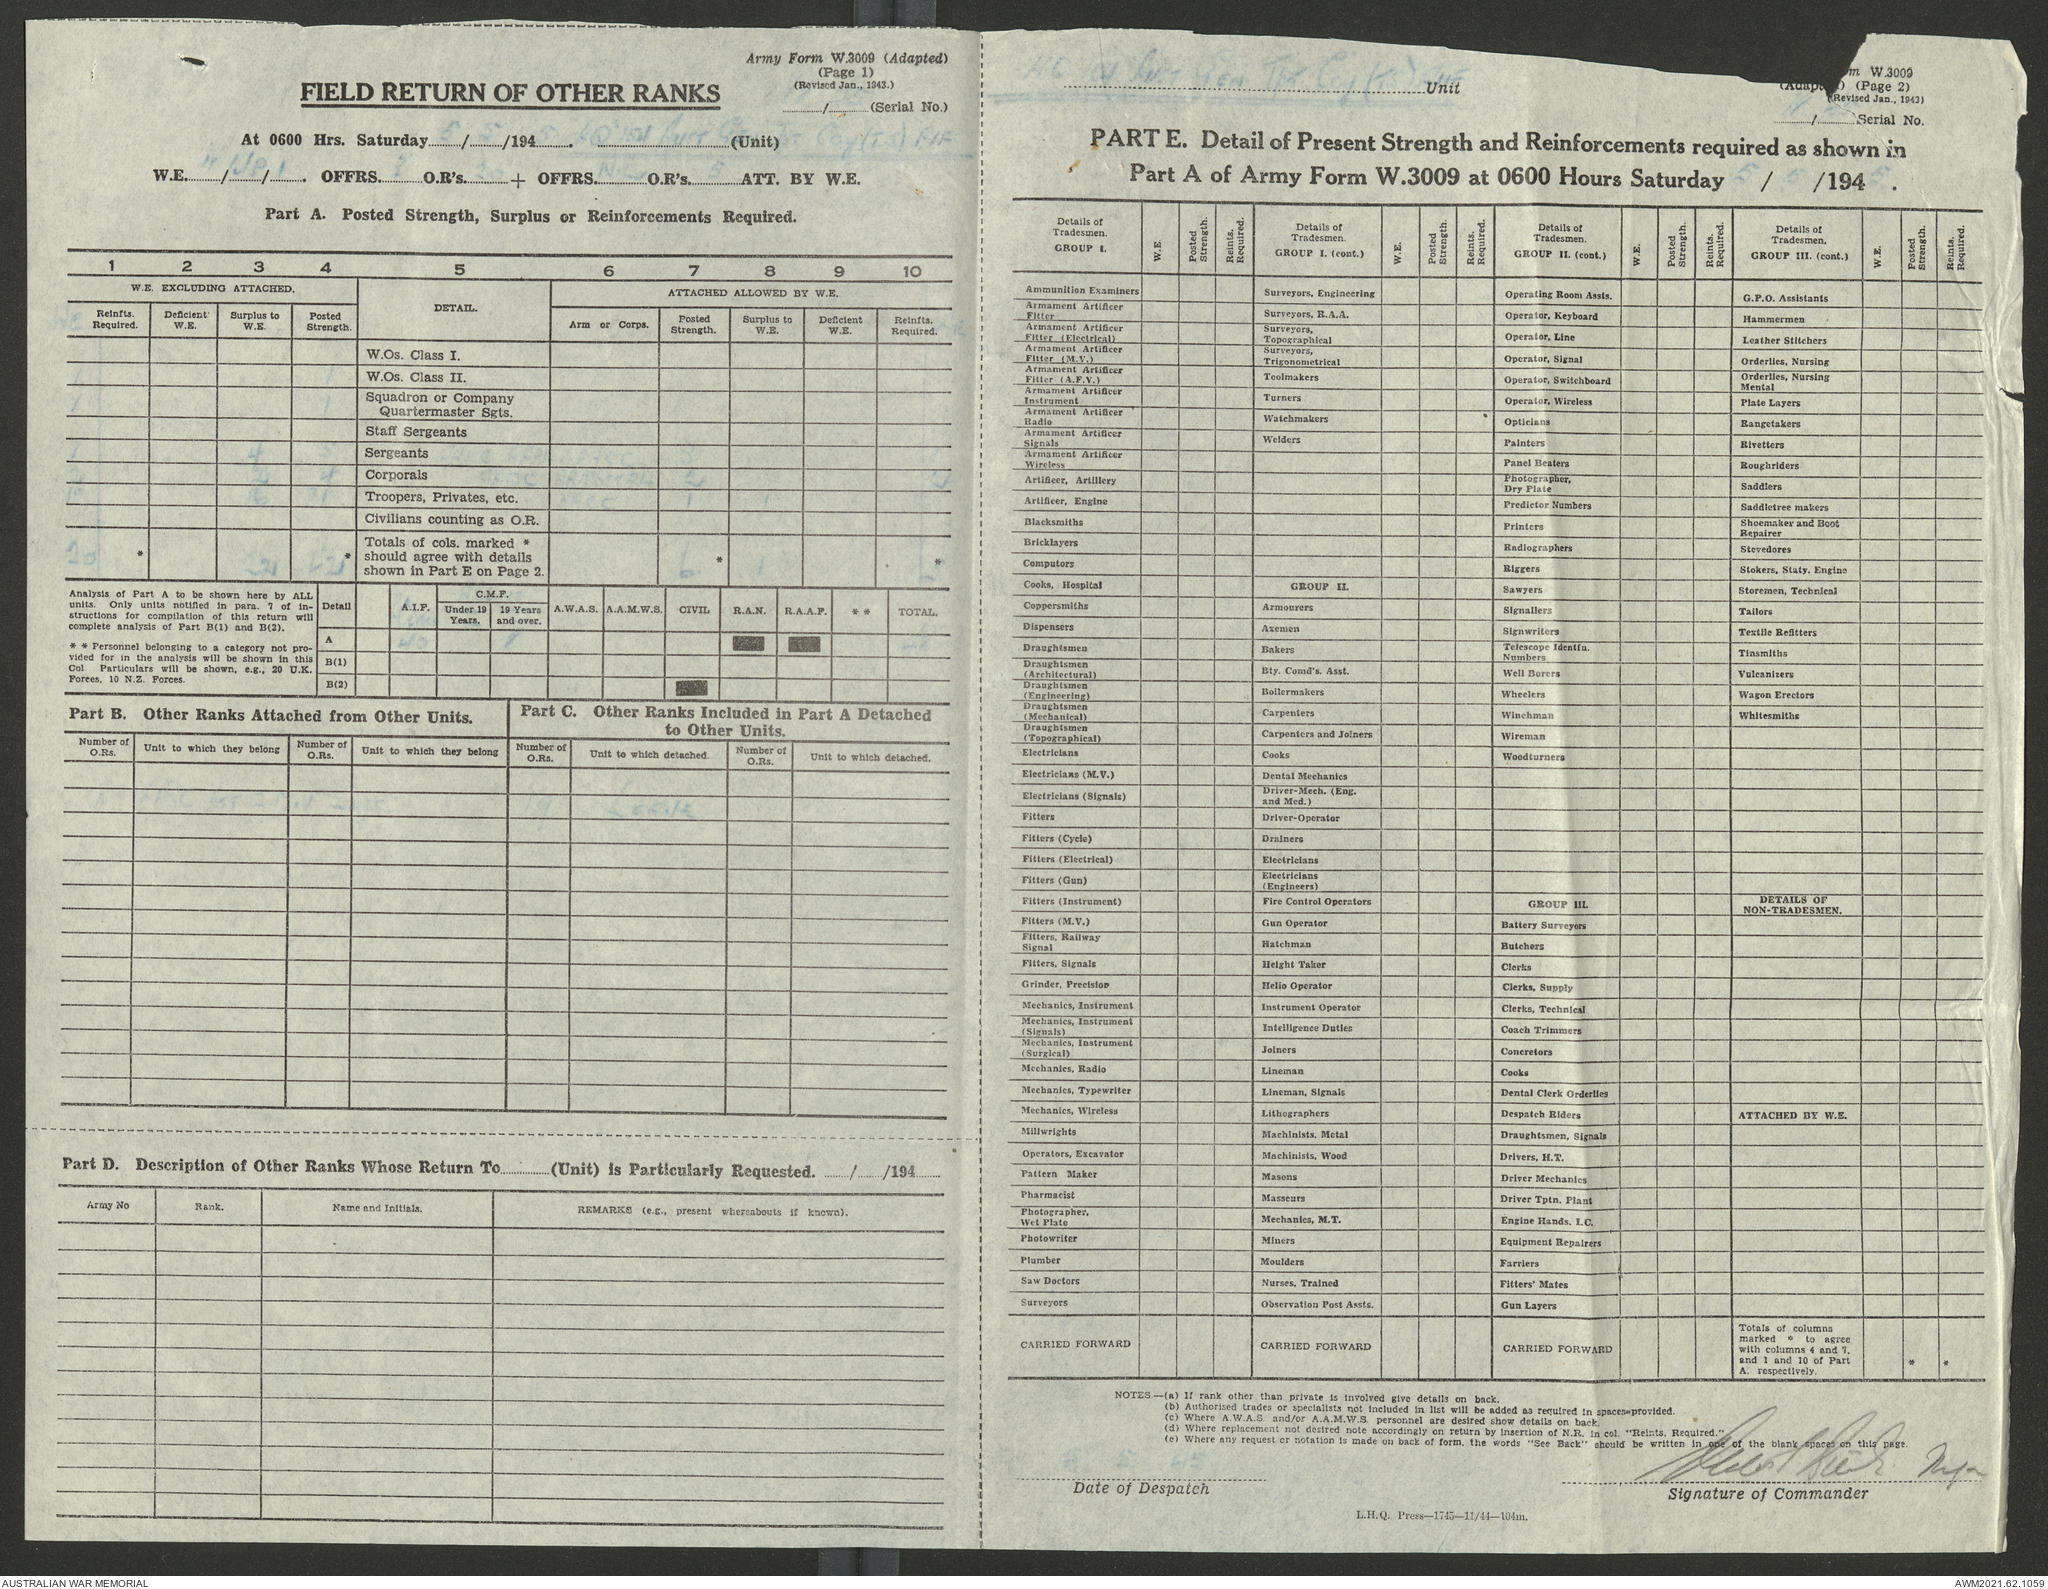 Army Form W.3009 (Adapted)
(Page 1)
(Revised Jan., 1943.)
FIELD RETURN OF OTHER RANKS
....../...... (Serial No.)
At 0600 Hrs. Saturday 5 / 5 /194 5. (Unit)
W.E. / / . OFFRS. O.R's. + OFFRS. O.R's. 5 ATT. BY W.E.
Part A. Posted Strength, Surplus or Reinforcements Required.
1 2 3 4 5 6 7 8 9 10
W.E. EXCLUDING ATTACHED. DETAIL. ATTACHED ALLOWED BY W.E.
Reinfts. Required. Deficient W.E. Surplus to W.E. Posted Strength. Arm or Corps. Posted Strength. Surplus to W.E. Deficient W.E. Reinfts. Required.
W.Os. Class I.
W.Os. Class II.
Squadron or Company
Quartermaster Sgts.
Staff Sergeants
Sergeants
Corporals
Troopers, Privates, etc.
Civilians counting as O.R.
Totals of cols. marked *
should agree with details
shown in Part E on Page 2.
* * * *
20 6 1
Analysis of Part A to be shown here by ALL
units. Only units notified in para. 7 of in-
structions for compilation of this return will
complete analysis of Part B(1) and B(2).
* * Personnel belonging to a category not pro-
vided for in the analysis will be shown in this
Col. Particulars will be shown, e.g., 20 U.K.
Forces, 10 N.Z. Forces.
Detail A.I.F. C.M.F. Under 19 Years. 19 Years and over. A.W.A.S. A.A.M.W.S. CIVIL R.A.N. R.A.A.F. * * TOTAL.
A
B(1)
B(2)
Part B. Other Ranks Attached from Other Units.
Part C. Other Ranks Included in Part A Detached
to Other Units.
Number of O.Rs. Unit to which they belong Number of O.Rs. Unit to which they belong Number of O.Rs. Unit to which detached. Number of O.Rs. Unit to which detached.
19
Part D. Description of Other Ranks Whose Return To (Unit) is Particularly Requested. / /194
Army No Rank. Name and Initials. REMARKS (e.g., present whereabouts if known).
Unit
W.3009
(Page 2)
(Revised Jan., 1943)
/ Serial No.
PART E. Detail of Present Strength and Reinforcements required as shown in
Part A of Army Form W.3009 at 0600 Hours Saturday 5 / 5 /194 5.
Details of Tradesmen. GROUP I. W.E. Posted Strength. Reints. Required.
Ammunition Examiners
Armament Artificer Fitter
Armament Artificer Fitter (Electrical)
Armament Artificer Fitter (M.V.)
Armament Artificer Fitter (A.F.V.)
Armament Artificer Instrument
Armament Artificer Radio
Armament Artificer Signals
Armament Artificer Wireless
Artificer, Artillery
Artificer, Engine
Blacksmiths
Bricklayers
Computors
Cooks, Hospital
Coppersmiths
Dispensers
Draughtsmen
Draughtsmen (Architectural)
Draughtsmen (Engineering)
Draughtsmen (Mechanical)
Draughtsmen (Topographical)
Electricians
Electricians (M.V.)
Electricians (Signals)
Fitters
Fitters (Cycle)
Fitters (Electrical)
Fitters (Gun)
Fitters (Instrument)
Fitters (M.V.)
Fitters, Railway Signal
Fitters, Signals
Grinder, Precision
Mechanics, Instrument
Mechanics, Instrument (Signals)
Mechanics, Instrument (Surgical)
Mechanics, Radio
Mechanics, Typewriter
Mechanics, Wireless
Millwrights
Operators, Excavator
Pattern Maker
Pharmacist
Photographer, Wet Plate
Photowriter
Plumber
Saw Doctors
Surveyors
CARRIED FORWARD
Details of Tradesmen. GROUP I. (cont.) W.E. Posted Strength. Reints. Required.
Surveyors, Engineering
Surveyors, R.A.A.
Surveyors, Topographical
Surveyors, Trigonometrical
Toolmakers
Turners
Watchmakers
Welders
GROUP II.
Armourers
Axemen
Bakers
Bty. Comd's. Asst.
Boilermakers
Carpenters
Carpenters and Joiners
Cooks
Dental Mechanics
Driver-Mech. (Eng. and Med.)
Driver-Operator
Drainers
Electricians
Electricians (Engineers)
Fire Control Operators
Gun Operator
Hatchman
Height Taker
Helio Operator
Instrument Operator
Intelligence Duties
Joiners
Lineman
Lineman, Signals
Lithographers
Machinists, Metal
Machinists, Wood
Masons
Masseurs
Mechanics, M.T.
Miners
Moulders
Nurses, Trained
Observation Post Assts.
CARRIED FORWARD
Details of Tradesmen. GROUP II. (cont.) W.E. Posted Strength. Reints. Required.
Operating Room Assts.
Operator, Keyboard
Operator, Line
Operator, Signal
Operator, Switchboard
Operator, Wireless
Opticians
Painters
Panel Beaters
Photographer, Dry Plate
Predictor Numbers
Printers
Radiographers
Riggers
Sawyers
Signallers
Signwriters
Telescope Identfn. Numbers
Well Borers
Wheelers
Winchman
Wireman
Woodturners
GROUP III.
Battery Surveyors
Butchers
Clerks
Clerks, Supply
Clerks, Technical
Coach Trimmers
Concretors
Cooks
Dental Clerk Orderlies
Despatch Riders
Draughtsmen, Signals
Drivers, H.T.
Driver Mechanics
Driver Tptn. Plant
Engine Hands, I.C.
Equipment Repairers
Farriers
Fitters' Mates
Gun Layers
CARRIED FORWARD
Details of Tradesmen. GROUP III. (cont.) W.E. Posted Strength. Reints. Required.
G.P.O. Assistants
Hammermen
Leather Stitchers
Orderlies, Nursing
Orderlies, Nursing Mental
Plate Layers
Rangetakers
Rivetters
Roughriders
Saddlers
Saddletree makers
Shoemaker and Boot Repairer
Stevedores
Stokers, Staty. Engine
Storemen, Technical
Tailors
Textile Refitters
Tinsmiths
Vulcanizers
Wagon Erectors
Whitesmiths
DETAILS OF NON-TRADESMEN.
ATTACHED BY W.E.
Totals of columns
marked * to agree
with columns 4 and 7,
and 1 and 10 of Part
A. respectively.
* *
NOTES.—(a) If rank other than private is involved give details on back.
(b) Authorised trades or specialists not included in list will be added as required in spaces provided.
(c) Where A.W.A.S. and/or A.A.M.W.S. personnel are desired show details on back.
(d) Where replacement not desired note accordingly on return by insertion of N.R. in col. "Reints. Required."
(e) Where any request or notation is made on back of form, the words "See Back" should be written in one of the blank spaces on this page.
Date of Despatch
Major
Signature of Commander
L.H.Q. Press—1745—11/44—104m.
AUSTRALIAN WAR MEMORIAL
AWM2021.62.1059